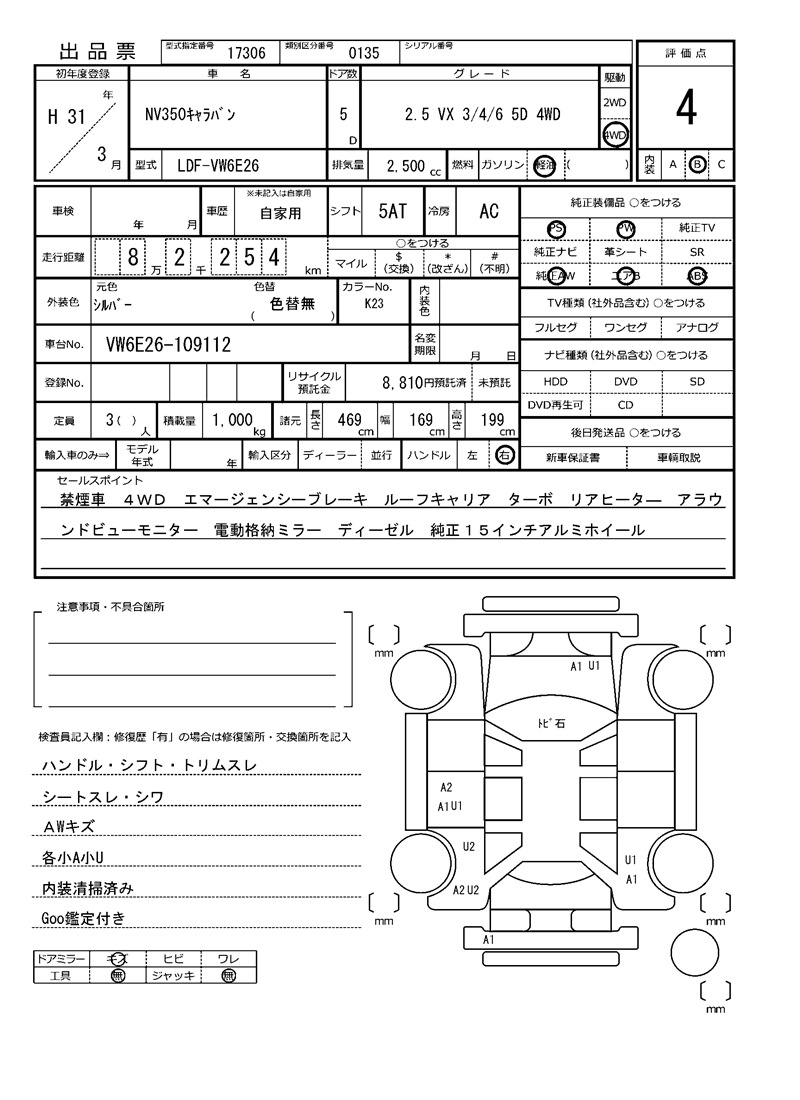 出品票 型式指定番号 17306 類別区分番号 0135 シリアル番号
評価点
4
内装 A B C
初年度登録 車名 ドア数 グレード 駆動
H 31 年 3 月 NV350ｷｬﾗﾊﾞﾝ 5 D 2.5 VX 3/4/6 5D 4WD 2WD 4WD
型式 LDF-VW6E26 排気量 2,500 cc 燃料 ガソリン 軽油 ( )
車検 年 月 車歴 ※未記入は自家用 自家用 シフト 5AT 冷房 AC
走行距離 8 万 2 千 2 5 4 km ○をつける マイル $ (交換) * (改ざん) # (不明)
外装色 元色 ｼﾙﾊﾞｰ 色替 ( 色替無 ) カラーNo. K23 内装色
車台No. VW6E26-109112 名変期限 月 日
登録No. リサイクル預託金 8,810円預託済 未預託
定員 3( ) 人 積載量 1,000 kg 諸元 長さ 469 cm 幅 169 cm 高さ 199 cm
輸入車のみ⇒ モデル年式 年 輸入区分 ディーラー 並行 ハンドル 左 右
純正装備品 ○をつける
PS PW 純正TV
純正ナビ 革シート SR
純正AW エアB ABS
TV種類 (社外品含む) ○をつける
フルセグ ワンセグ アナログ
ナビ種類 (社外品含む) ○をつける
HDD DVD SD
DVD再生可 CD
後日発送品 ○をつける
新車保証書 車輌取説
セールスポイント
禁煙車 ４ＷＤ エマージェンシーブレーキ ルーフキャリア ターボ リアヒーター アラウ
ンドビューモニター 電動格納ミラー ディーゼル 純正１５インチアルミホイール
注意事項・不具合箇所
検査員記入欄：修復歴「有」の場合は修復箇所・交換箇所を記入
ハンドル・シフト・トリムスレ
シートスレ・シワ
AWキズ
各小A小U
内装清掃済み
Goo鑑定付き
ドアミラー キズ ヒビ ワレ
工具 無 ジャッキ 無
mm mm
A1 U1
ﾄﾋﾞ石
A2
A1U1
U2
A2 U2
U1
A1
mm mm
A1
mm